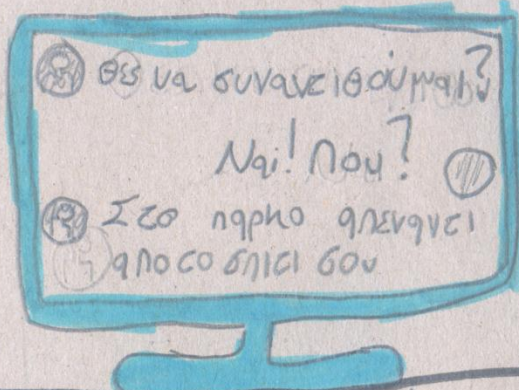 Θες να συναντιθούμαι?
Ναι! Που?
Στο παρκο απεναντι
απο το σπιτι σου